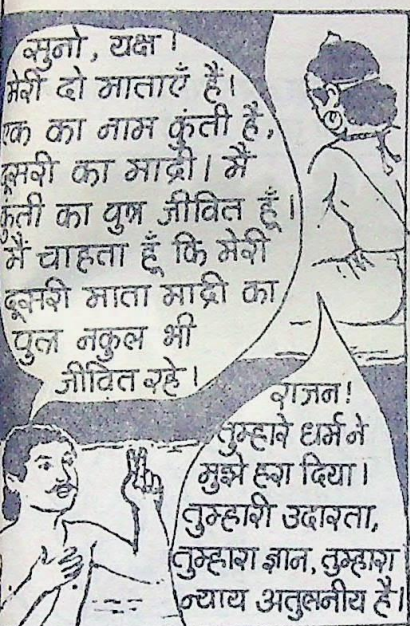 सुनो, यक्ष।
मेरी दो माताएँ हैं।
एक का नाम कुंती है,
दूसरी का माद्री। मैं
कुंती का पुत्र जीवित हूँ।
मैं चाहता हूँ कि मेरी
दूसरी माता माद्री का
पुत्र नकुल भी
जीवित रहे।
राजन!
तुम्हारे धर्म ने
मुझे हरा दिया।
तुम्हारी उदारता,
तुम्हारा ज्ञान, तुम्हारा
न्याय अतुलनीय है।